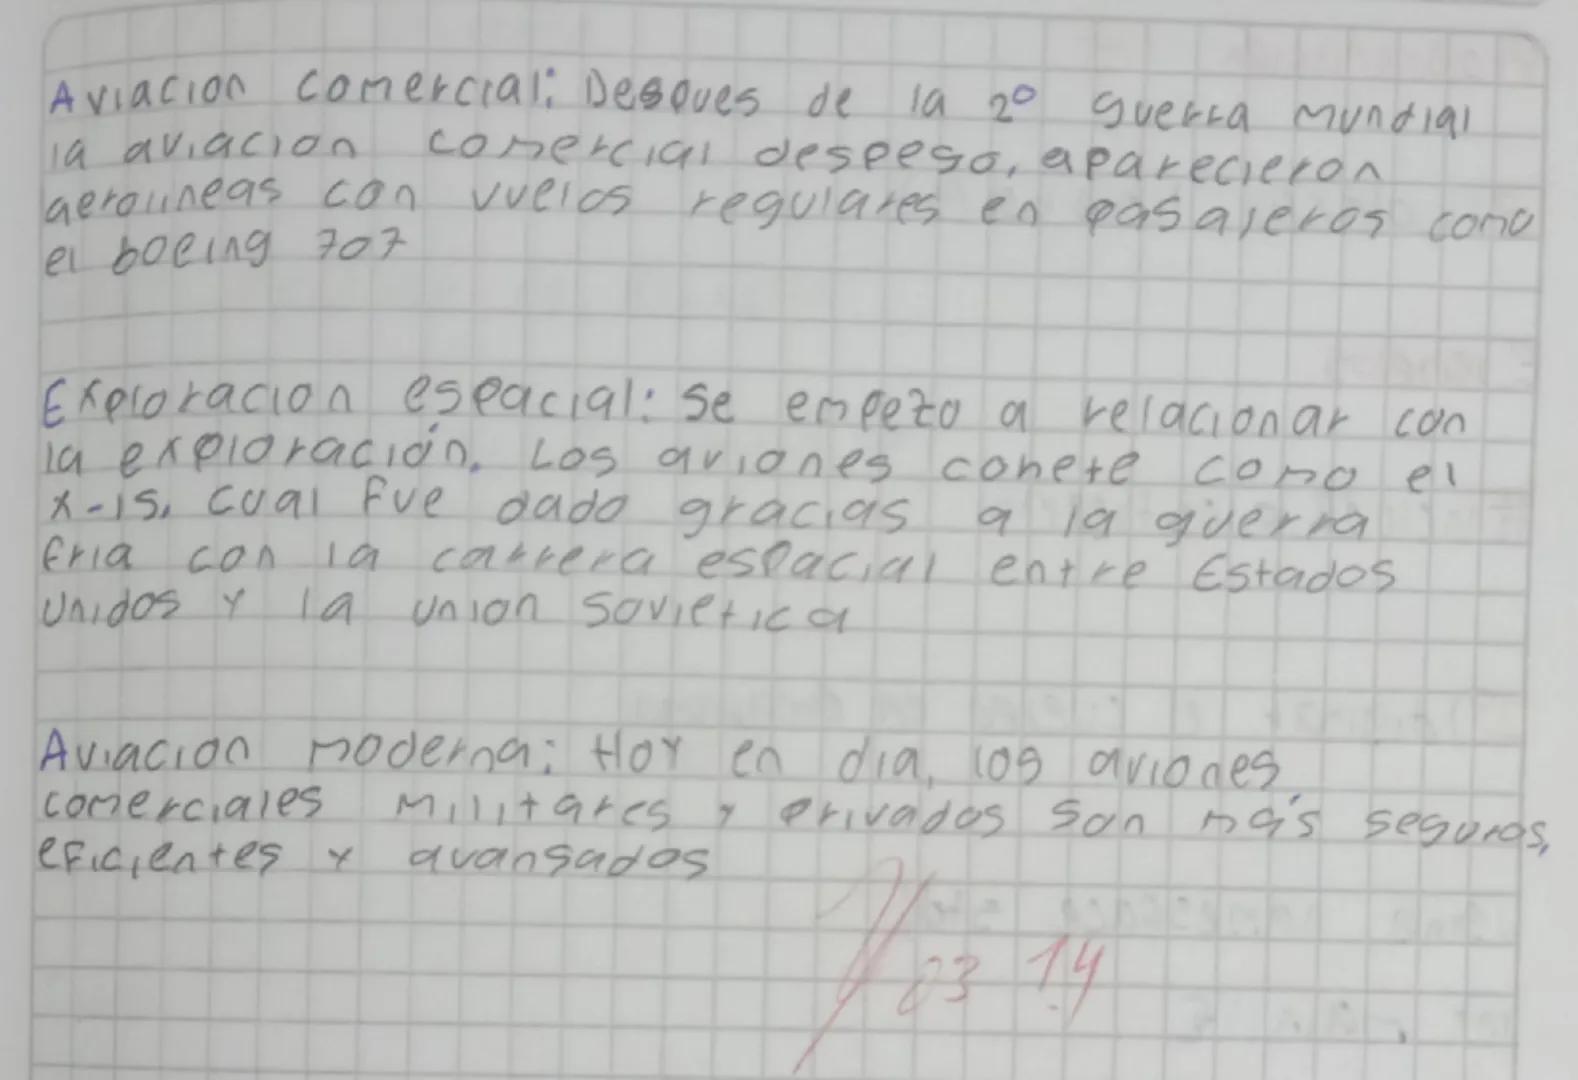 Aviacion comercial: Despues de la 2º guerra mundial
la aviacion comercial despego, aparecieron
aerolineas con vuelos regulares en pasajeros como
el boeing 707
Exploracion espacial: Se empezo a relacionar con
la exploración. Los aviones cohete como el
X-15, cual fue dado gracias a la guerra
fria con la carrera espacial entre Estados
Unidos y la union Sovietica
Aviacion moderna: Hoy en dia, los aviones
comerciales militares y privados son más seguros,
eficientes y avansados
03 14